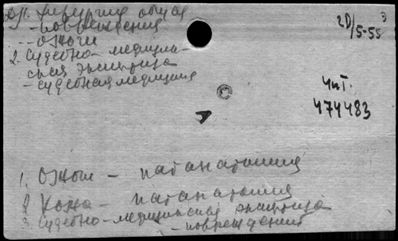 Хирургия общая
- повреждения
- ожоги
2. Судебно-медицин-
ская экспертиза
- судебная медицина
2D/5-55
3
Чит.
474483
1. Ожоги - патанатомия
2. Кожа - патанатомия
3. Судебно-медицинская экспертиза
- повреждения